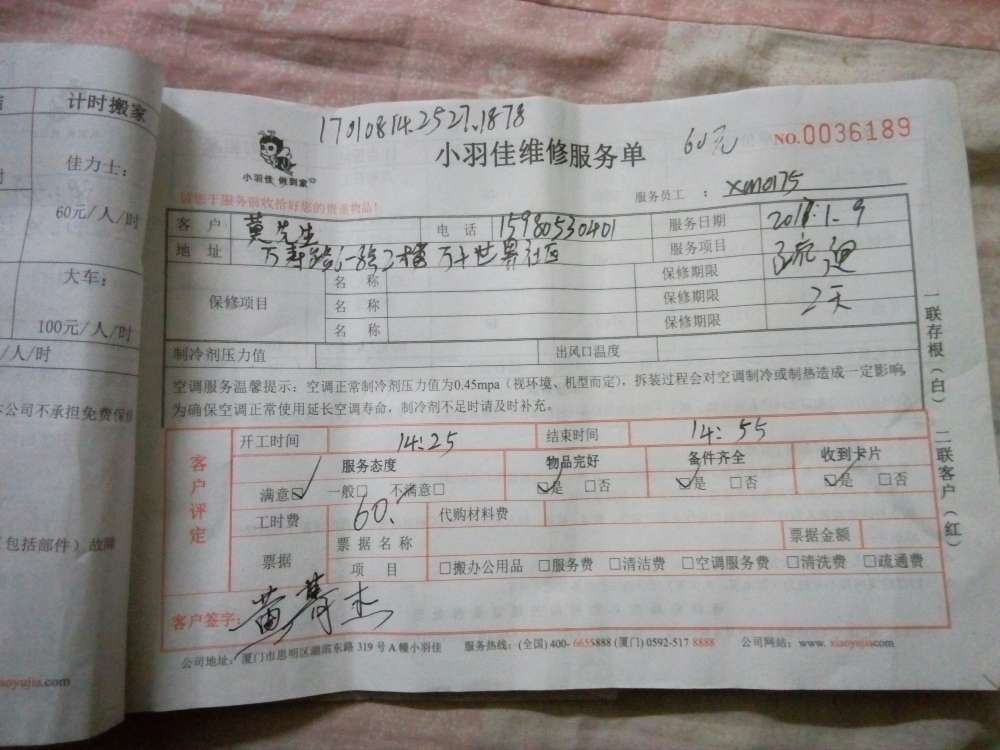 计时搬家
佳力士：
60元/人/时
大车：
100元/人/时
/人/时
本公司不承担免费保修
（包括部件）故障
aoyujia.com
17010814.2527.1878
小羽佳 做到家
小羽佳维修服务单
60元
NO.0036189
请您于服务前收拾好您的贵重物品！
服务员工 ： xm0175
客 户 黄先生 电 话 15980530401 服务日期 2017.1.9
地 址 服务项目 疏通
保修项目 名 称 保修期限 2天
名 称 保修期限
名 称 保修期限
制冷剂压力值 出风口温度
空调服务温馨提示：空调正常制冷剂压力值为0.45mpa（视环境、机型而定），拆装过程会对空调制冷或制热造成一定影响，
为确保空调正常使用延长空调寿命，制冷剂不足时请及时补充。
客户评定
开工时间 14:25 结束时间 14:55
服务态度 物品完好 备件齐全 收到卡片
满意☑ 一般□ 不满意□ ☑是 □否 ☑是 □否 ☑是 □否
工时费 60. 代购材料费
票据 票据名称 票据金额
项 目 □搬办公用品 □服务费 □清洁费 □空调服务费 □清洗费 □疏通费
客户签字：
公司地址：厦门市思明区湖滨东路 319 号 A 幢小羽佳 服务热线：(全国) 400- 6655888 (厦门) 0592-517 8888 公司网站：www. xiaoyujia.com
一联存根（白）
二联客户（红）